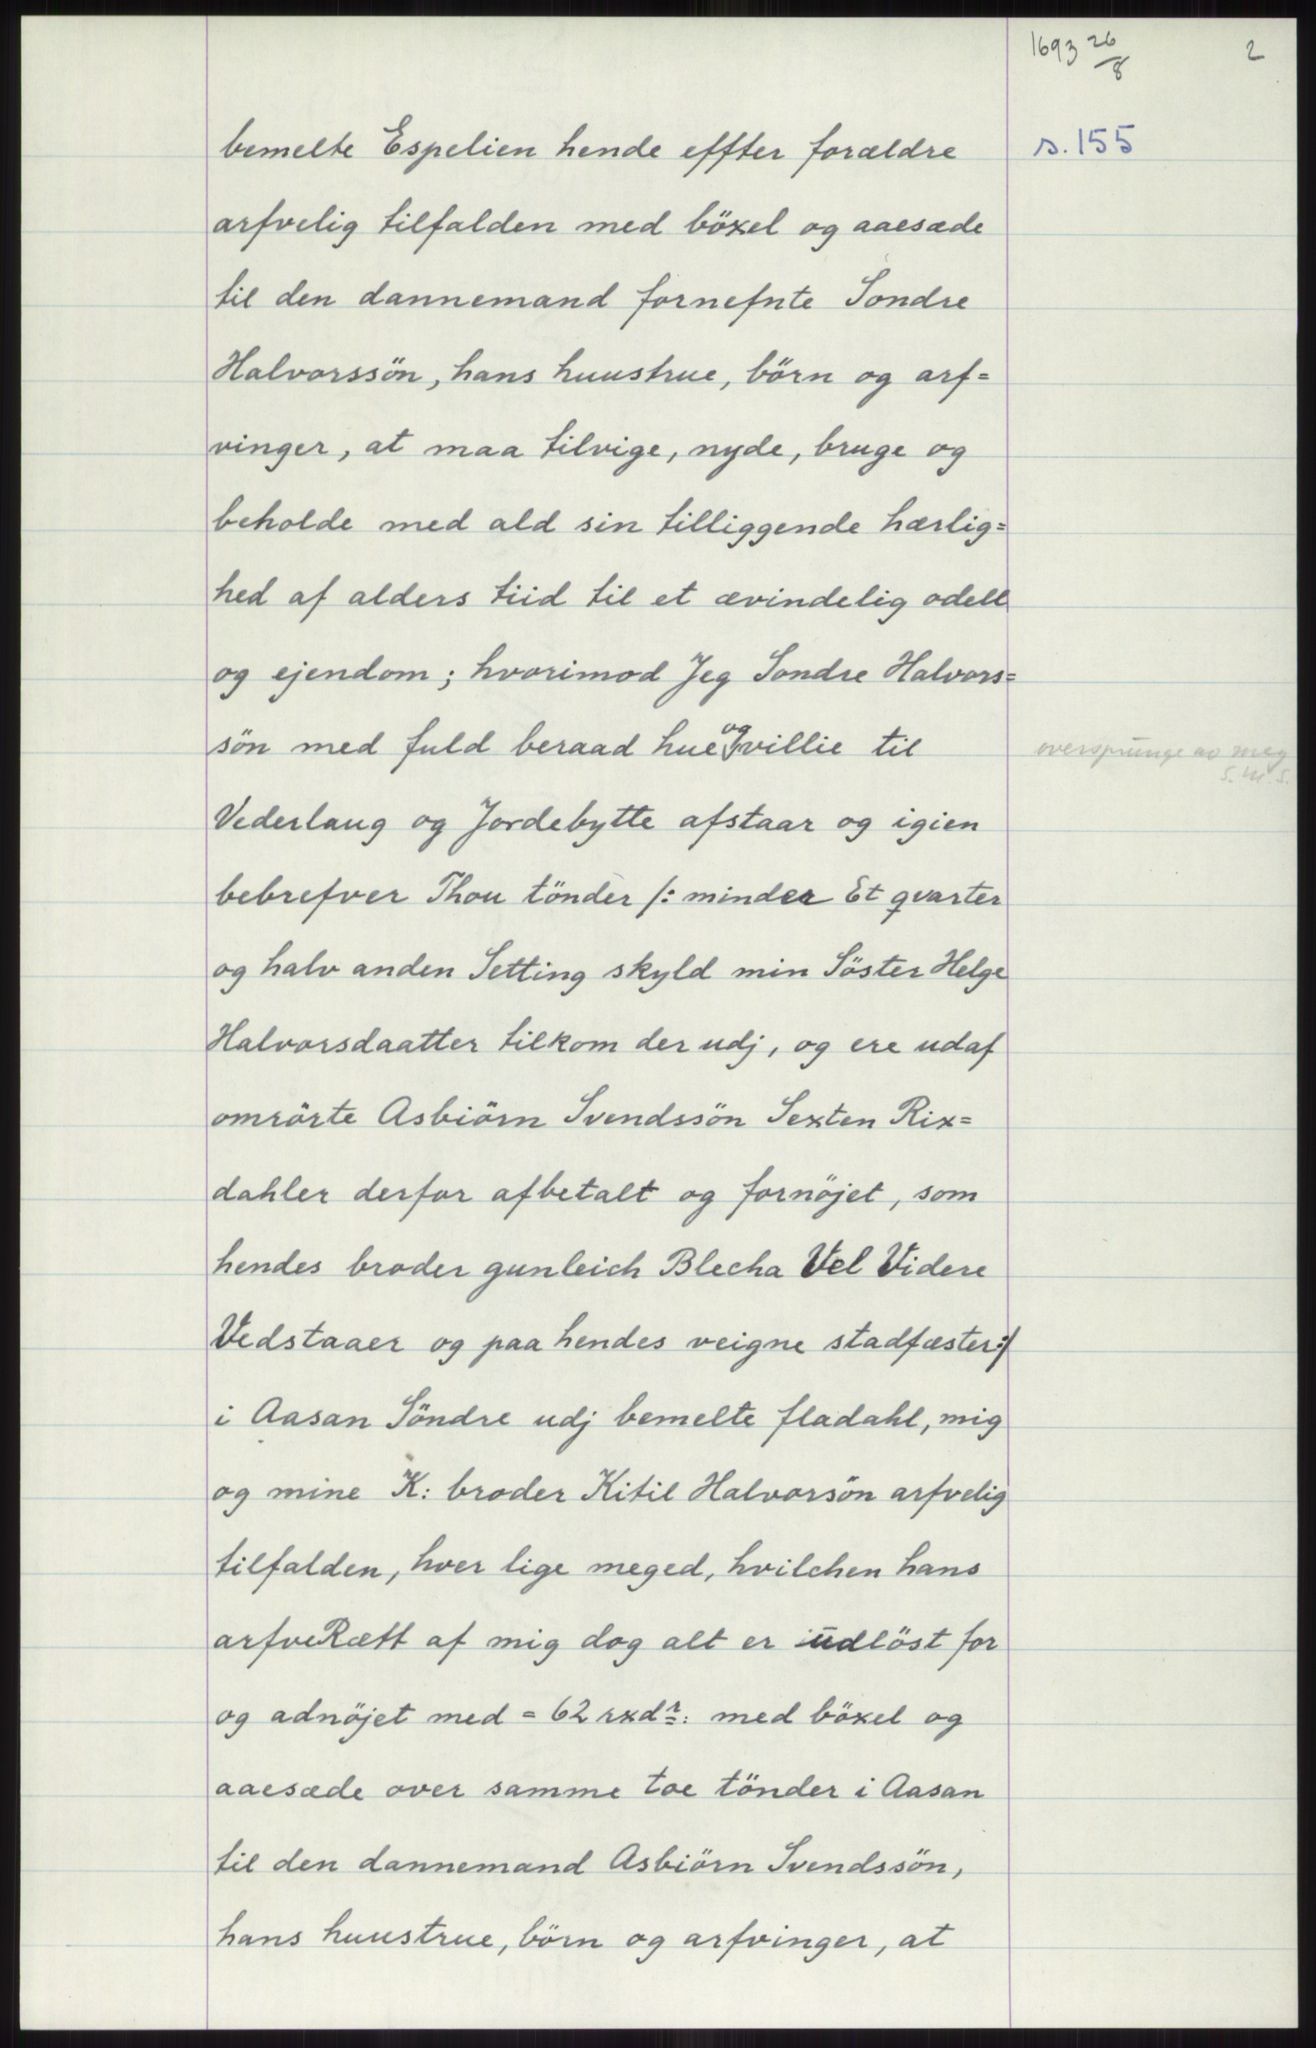 1693 26/8
2
bemelte Espelien hende effter forældre
s. 155
arfvelig tilfalden med böxel og aaesæde
til den dannemand fornefnte Sondre
Halvorssön, hans huustrue, börn og arf=
vinger, at maa tilvige, nyde, bruge og
beholde med ald sin tilliggende hærlig=
hed af alders tiid til et ævindelig odell
og ejendom; hvorimod Jeg Sondre Halvors=
sön med fuld beraad hue og villie til
oversprunge av meg
S.M.S.
Vederlaug og Jordebytte afstaar og igien
bebrefver Thou tönder /: minder Et qvarter
og halv anden Setting skyld min Söster Helge
Halvorsdaatter tilkom der udj, og ere udaf
omrörte Asbiörn Svendssön Sexten Rix=
dahler derfor afbetalt og fornöjet, som
hendes broder gunleich Blecha Vel Videre
Vedstaaer og paa hendes veigne stadfæster :/
i Aasan Söndre udj bemelte fladahl, mig
og mine K: broder Kitil Halvorsön arfvelig
tilfalden, hver lige meged, hvilchen hans
arfveRætt af mig dog alt er udlöst for
og adnöjet med = 62 rxdr: med böxel og
aaesæde over samme toe tönder i Aasan
til den dannemand Asbiörn Svendssön,
hans huustrue, börn og arfvinger, at